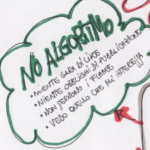 NO ALGORITMO!
• NIENTE GARA DI LIKE
• NIENTE OBBLIGHI DI PUBBLICAZIONE
• NON PERDONO I FLAME
• VEDO QUELLO CHE MI INTERESSA